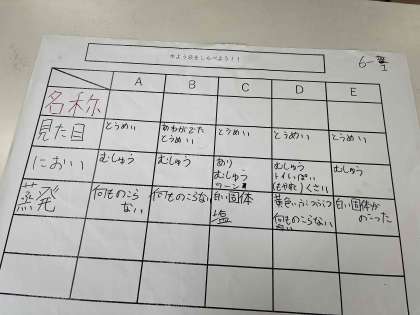 水よう液をしらべよう！！
6-
A B C D E
名称
見た目 とうめい あわがでた とうめい とうめい とうめい とうめい
におい むしゅう むしゅう あり むしゅう ツーン むしゅう トイレっぽい くさい むしゅう
蒸発 何ものこらない 何ものこらない 白い固体 塩 黄色い 何ものこらない 白い固体がのこった